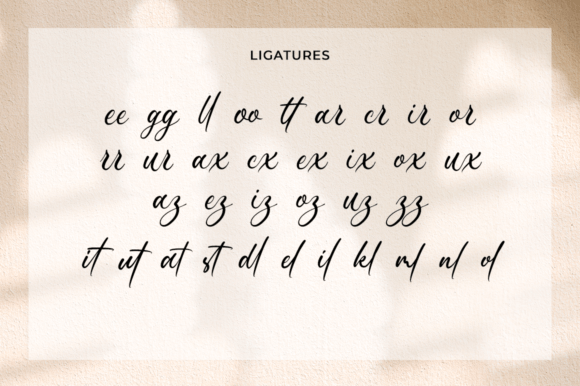 LIGATURES
ee gg ll oo tt ar cr ir or
rr ur ax cx ex ix ox ux
az ez iz oz uz zz
it ut at st dl el il kl ml nl ol